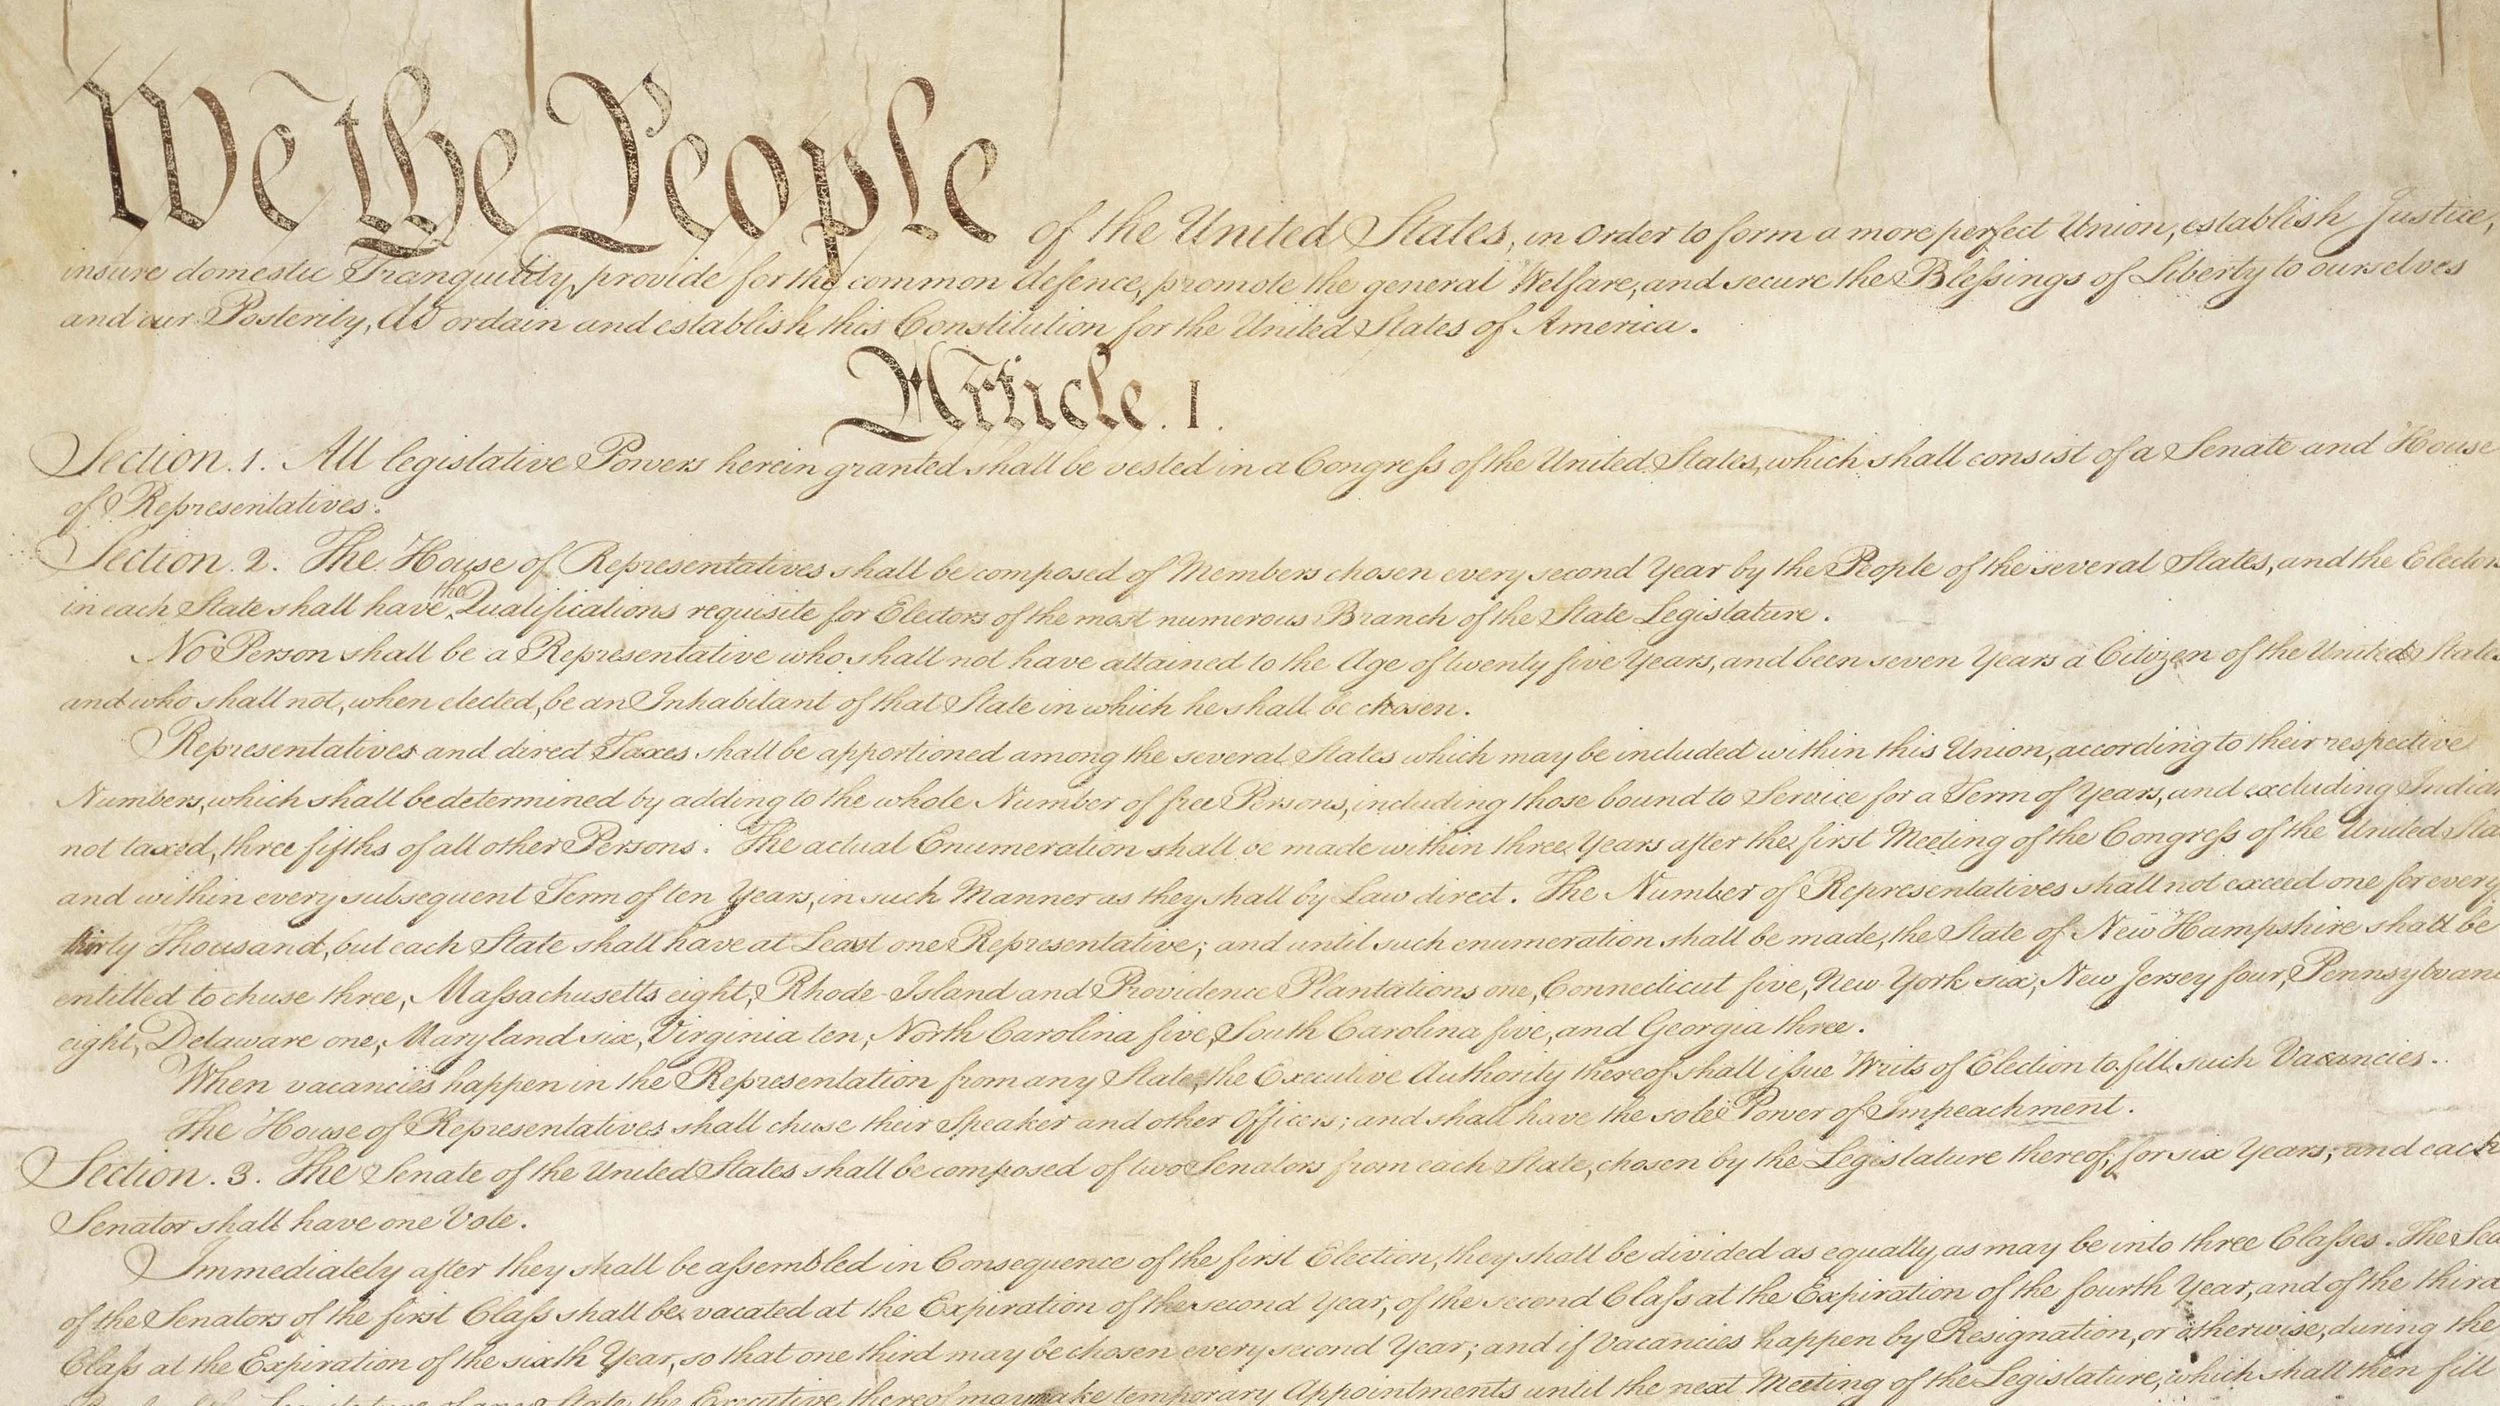 We the People of the United States, in Order to form a more perfect Union, establish Justice,
insure domestic Tranquility, provide for the common defence, promote the general Welfare, and secure the Blessings of Liberty to ourselves
and our Posterity, do ordain and establish this Constitution for the United States of America.
Article. I.
Section. 1. All legislative Powers herein granted shall be vested in a Congress of the United States, which shall consist of a Senate and House
of Representatives.
Section. 2. The House of Representatives shall be composed of Members chosen every second Year by the People of the several States, and the Electors
in each State shall have the Qualifications requisite for Electors of the most numerous Branch of the State Legislature.
No Person shall be a Representative who shall not have attained to the Age of twenty five Years, and been seven Years a Citizen of the United States,
and who shall not, when elected, be an Inhabitant of that State in which he shall be chosen.
Representatives and direct Taxes shall be apportioned among the several States which may be included within this Union, according to their respective
Numbers, which shall be determined by adding to the whole Number of free Persons, including those bound to Service for a Term of Years, and excluding Indian
not taxed, three fifths of all other Persons. The actual Enumeration shall be made within three Years after the first Meeting of the Congress of the United Sta
and within every subsequent Term of ten Years, in such Manner as they shall by Law direct. The Number of Representatives shall not exceed one for every
thirty Thousand, but each State shall have at Least one Representative; and until such enumeration shall be made, the State of New Hampshire shall be
entitled to chuse three, Massachusetts eight, Rhode-Island and Providence Plantations one, Connecticut five, New-York six, New Jersey four, Pennsylvani
eight, Delaware one, Maryland six, Virginia ten, North Carolina five, South Carolina five, and Georgia three.
When vacancies happen in the Representation from any State, the Executive Authority thereof shall issue Writs of Election to fill such Vacancies.
The House of Representatives shall chuse their Speaker and other Officers; and shall have the sole Power of Impeachment.
Section. 3. The Senate of the United States shall be composed of two Senators from each State, chosen by the Legislature thereof, for six Years; and each
Senator shall have one Vote.
Immediately after they shall be assembled in Consequence of the first Election, they shall be divided as equally as may be into three Classes. The Sea
of the Senators of the first Class shall be vacated at the Expiration of the second Year, of the second Class at the Expiration of the fourth Year, and of the third
Class at the Expiration of the sixth Year, so that one third may be chosen every second Year; and if Vacancies happen by Resignation, or otherwise, during the
Recess of the Legislature of any State, the Executive thereof may make temporary Appointments until the next Meeting of the Legislature, which shall then fill